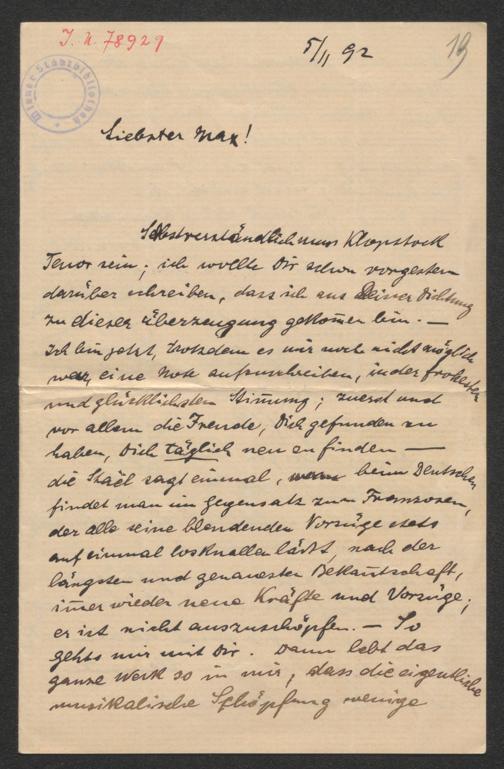 I. N. 78929
5/11 92
19
Wiener Stadtbibliothek
Liebster Max!
Selbstverständlich muss Klopstock
Tenor sein; ich wollte Dir schon vorgestern
darüber schreiben, dass ich aus Deiner Dichtung
zu dieser Überzeugung gekom̅en bin. —
Ich bin jetzt, trotzdem es mir noch nicht möglich
war, eine Note aufzuschreiben, in der frohesten
und glücklichsten Stim̅ung; zuerst und
vor allem die Freude, Dich gefunden zu
haben, Dich täglich neu zu finden —
die Staël sagt einmal, beim Deutschen
findet man im Gegensatz zum Franzosen,
der alle seine blendenden Vorzüge stets
auf einmal losknallen läßt, nach der
längsten und genauesten Bekan̅tschaft,
im̅er wieder neue Kräfte und Vorzüge;
er ist nicht auszuschöpfen. — So
gehts mir mit Dir. Dann lebt das
ganze Werk so in mir, dass die eigentliche
musikalische Schöpfung wenige